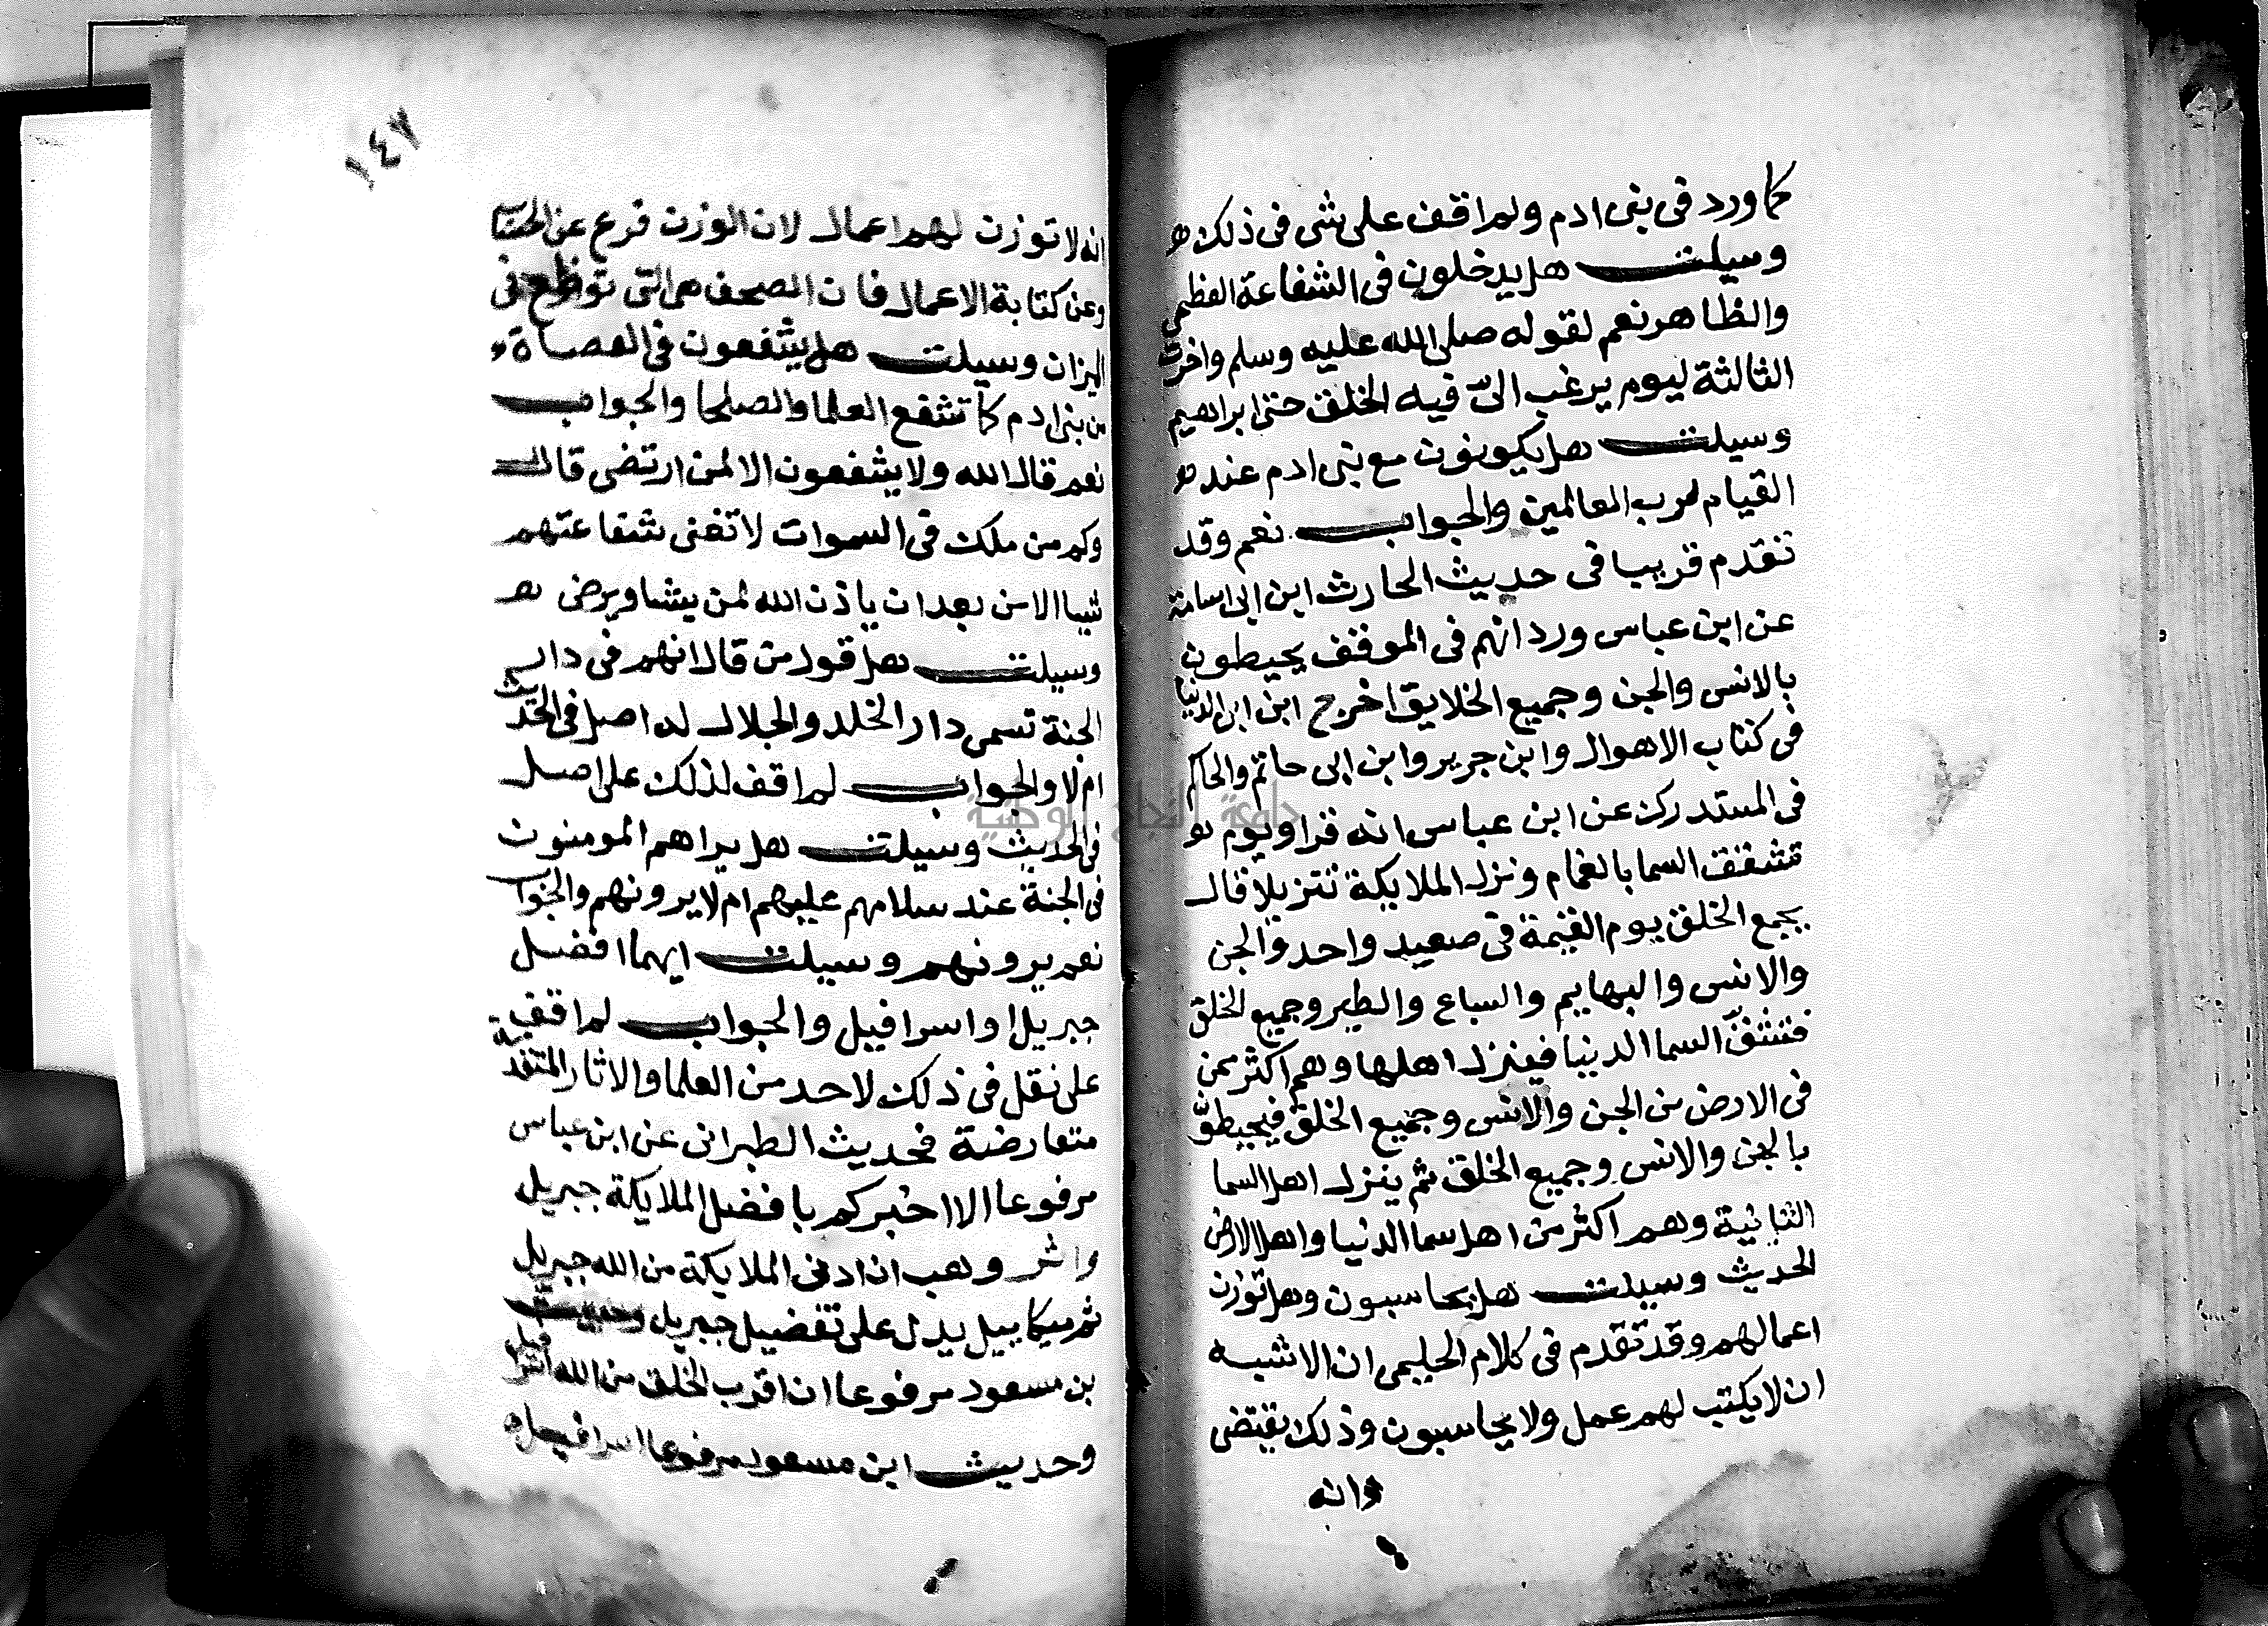 كما ورد فى بنى ادم ولم اقف على شى فى ذلك ه
وسيلت هل يدخلون فى الشفاعة العظمى
والظاهر نعم لقوله صلى الله عليه وسلم واخرت
الثالثة ليوم يرغب الىّ فيه الخلق حتى ابراهيم
وسيلت هل يكونون مع بنى ادم عند ه
القيام لرب العالمين والجواب نعم وقد
تقدم قريبا فى حديث الحارث ابن ابى اسامة
عن ابن عباس ورد انهم فى الموقف يحيطون
بالانس والجن وجميع الخلايق اخرج ابن ابى الدنيا
فى كتاب الاهوال وابن جرير وابن ابى حاتم والحاكم
فى المستدرك عن ابن عباس انه قرا ويوم
تشقق السما بالغمام ونزل الملايكة تنزيلا قال
يجمع الخلق يوم القيمة فى صعيد واحد والجن
والانس والبهايم والسباع والطير وجميع الخلق
فتشقق السما الدنيا فينزل اهلها وهم اكثر ممن
فى الارض من الجن والانس وجميع الخلق فيحيطو
بالجن والانس وجميع الخلق ثم ينزل اهل السما
الثانية وهم اكثر من اهل سما الدنيا واهل الارض
الحديث وسيلت هل يحاسبون وهل توزن
اعمالهم وقد تقدم فى كلام الحليمى ان الاشبه
ان لا يكتب لهم عمل ولا يحاسبون وذلك يقتضى
وانه
١٤٧
انه لا توزن لهم اعمال لان الوزن فرع عن الحساب
وعن كتابة الاعمال فان الصحف هى التى توضع فى
الميزان وسيلت هل يشفعون فى العصاة
من بنى ادم كما تشفع العلما والصلحا والجواب
نعم قال الله ولا يشفعون الا لمن ارتضى قال
وكم من ملك فى السموات لا تغنى شفاعتهم
شيا الا من بعد ان ياذن الله لمن يشا ويرضى
وسيلت هل قول من قال انهم فى دار
الجنة تسمى دار الخلد والجلال له اصل فى الحديث
ام لا والجواب لم اقف لذلك على اصل
فى الحديث وسيلت هل يراهم المومنون
فى الجنة عند سلامهم عليهم ام لا يرونهم والجواب
نعم يرونهم وسيلت ايهما افضل
جبريل او اسرافيل والجواب لم اقف
على نقل فى ذلك لاحد من العلما والاثار المتقدمة
متعارضة فحديث الطبرانى عن ابن عباس
مرفوعا الا اخبركم بافضل الملايكة جبريل
واثر وهب ان ادنى الملايكة من الله جبريل
ثم ميكاييل يدل على تفضيل جبريل وحديث
بن مسعود مرفوعا ان اقرب الخلق من الله اسرافيل
وحديث ابن مسعود مرفوعا اسرافيل